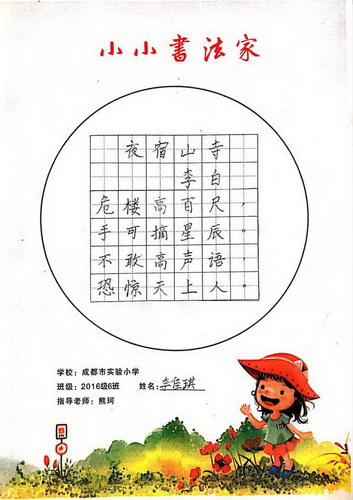 小小書法家
夜宿山寺
李白
危楼高百尺，
手可摘星辰。
不敢高声语，
恐惊天上人。
学校：成都市实验小学
班级：2016级6班 姓名：李佳琪
指导老师：熊珂